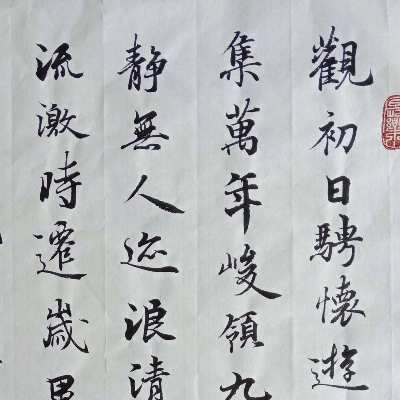 觀初日騁懷遊
集萬年峻領九
静無人迹浪清
流激時遷歲